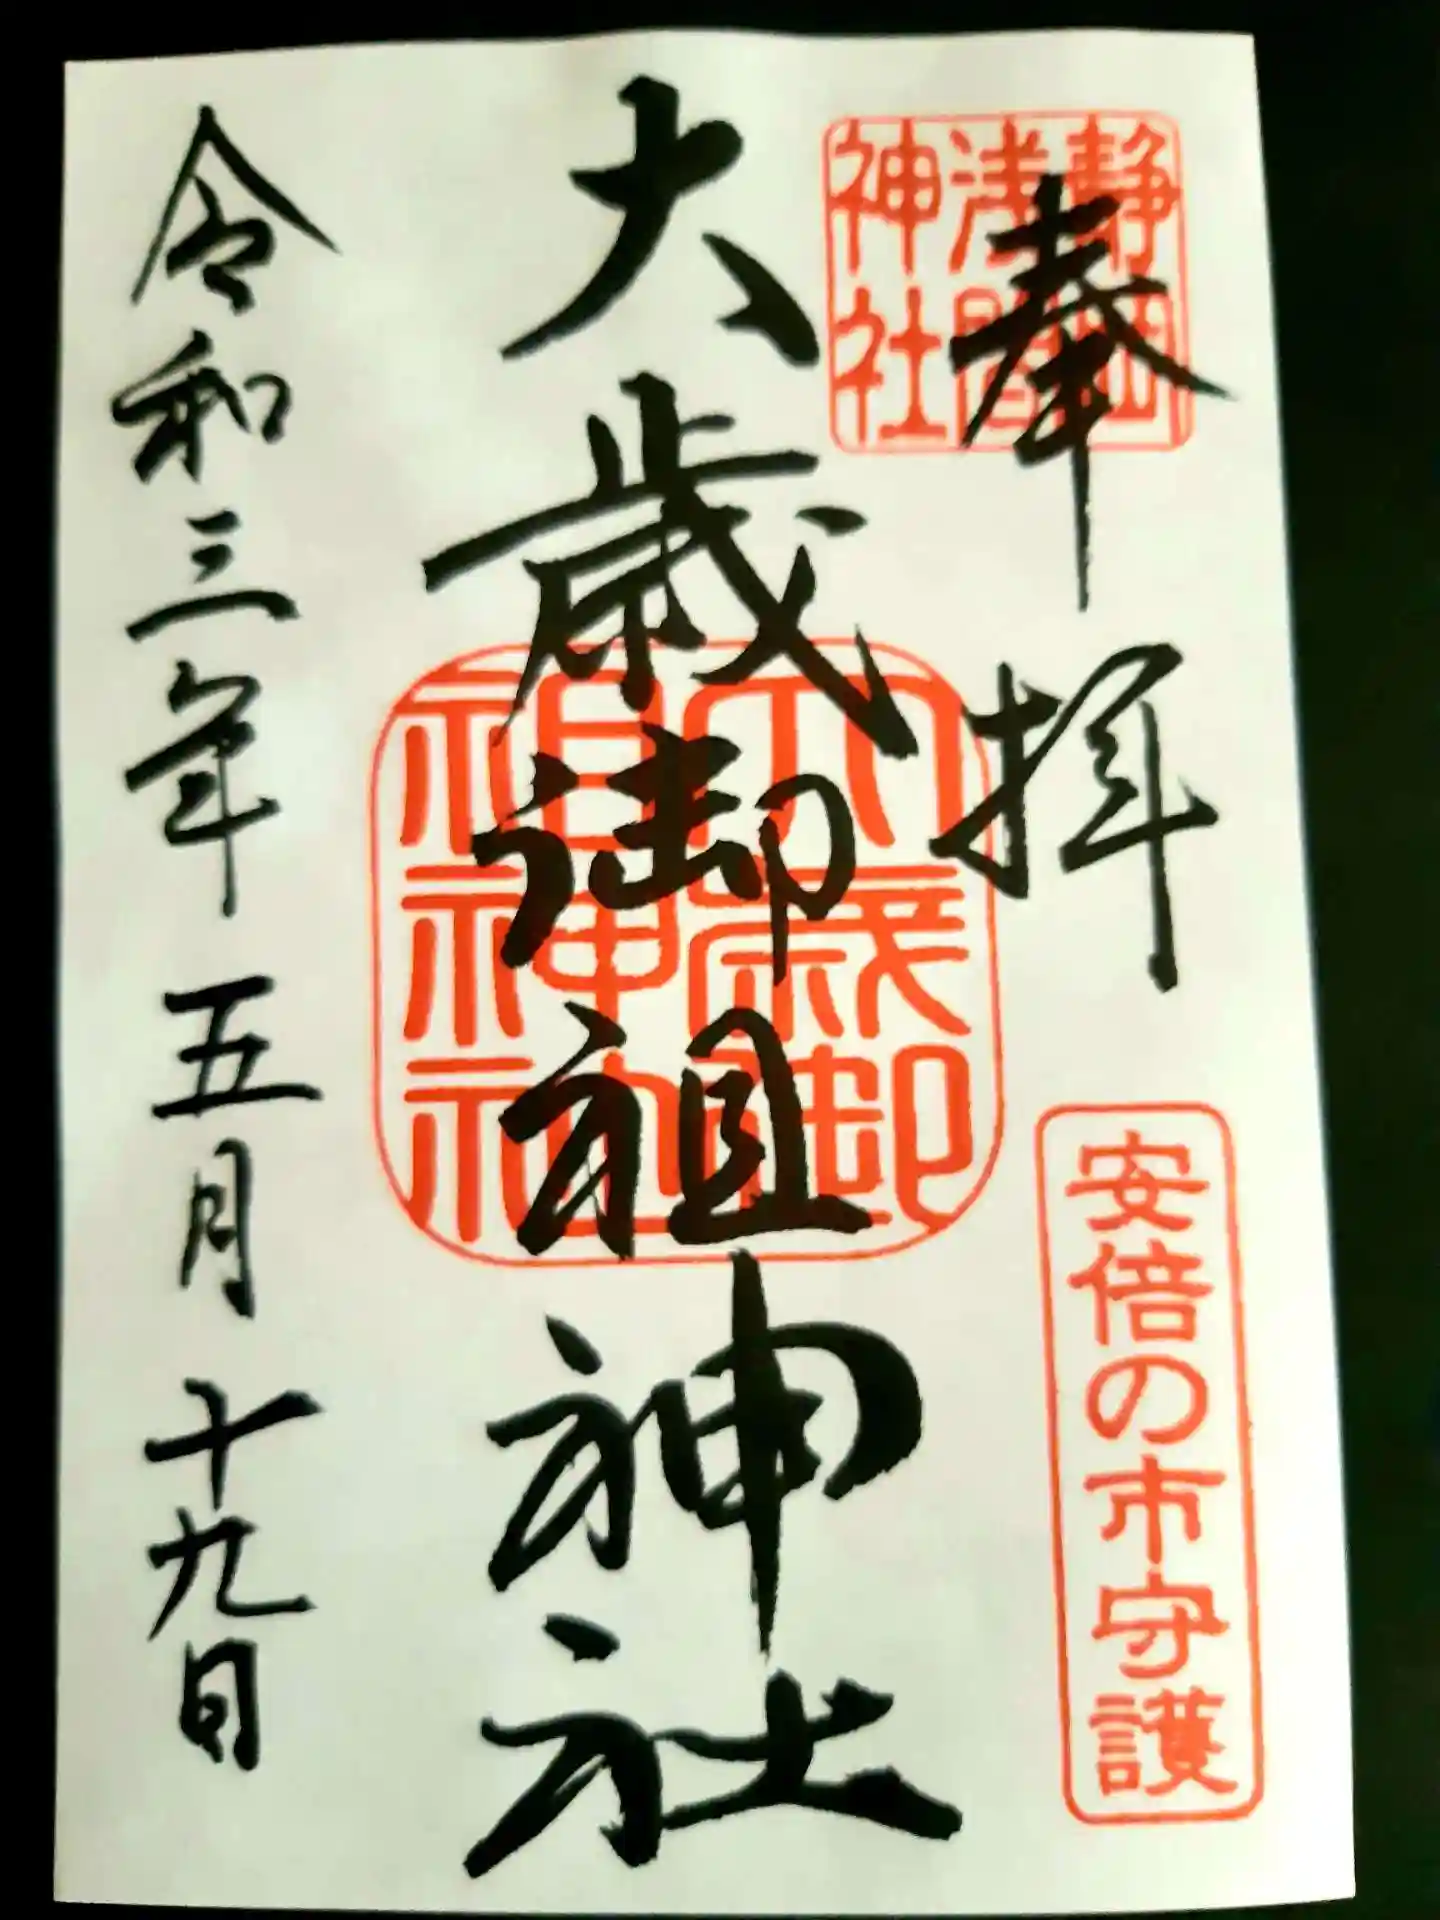 奉拝
静岡
浅間
神社
安倍の市守護
大歳御祖神社
大歳御
祖神社
令和三年五月十九日